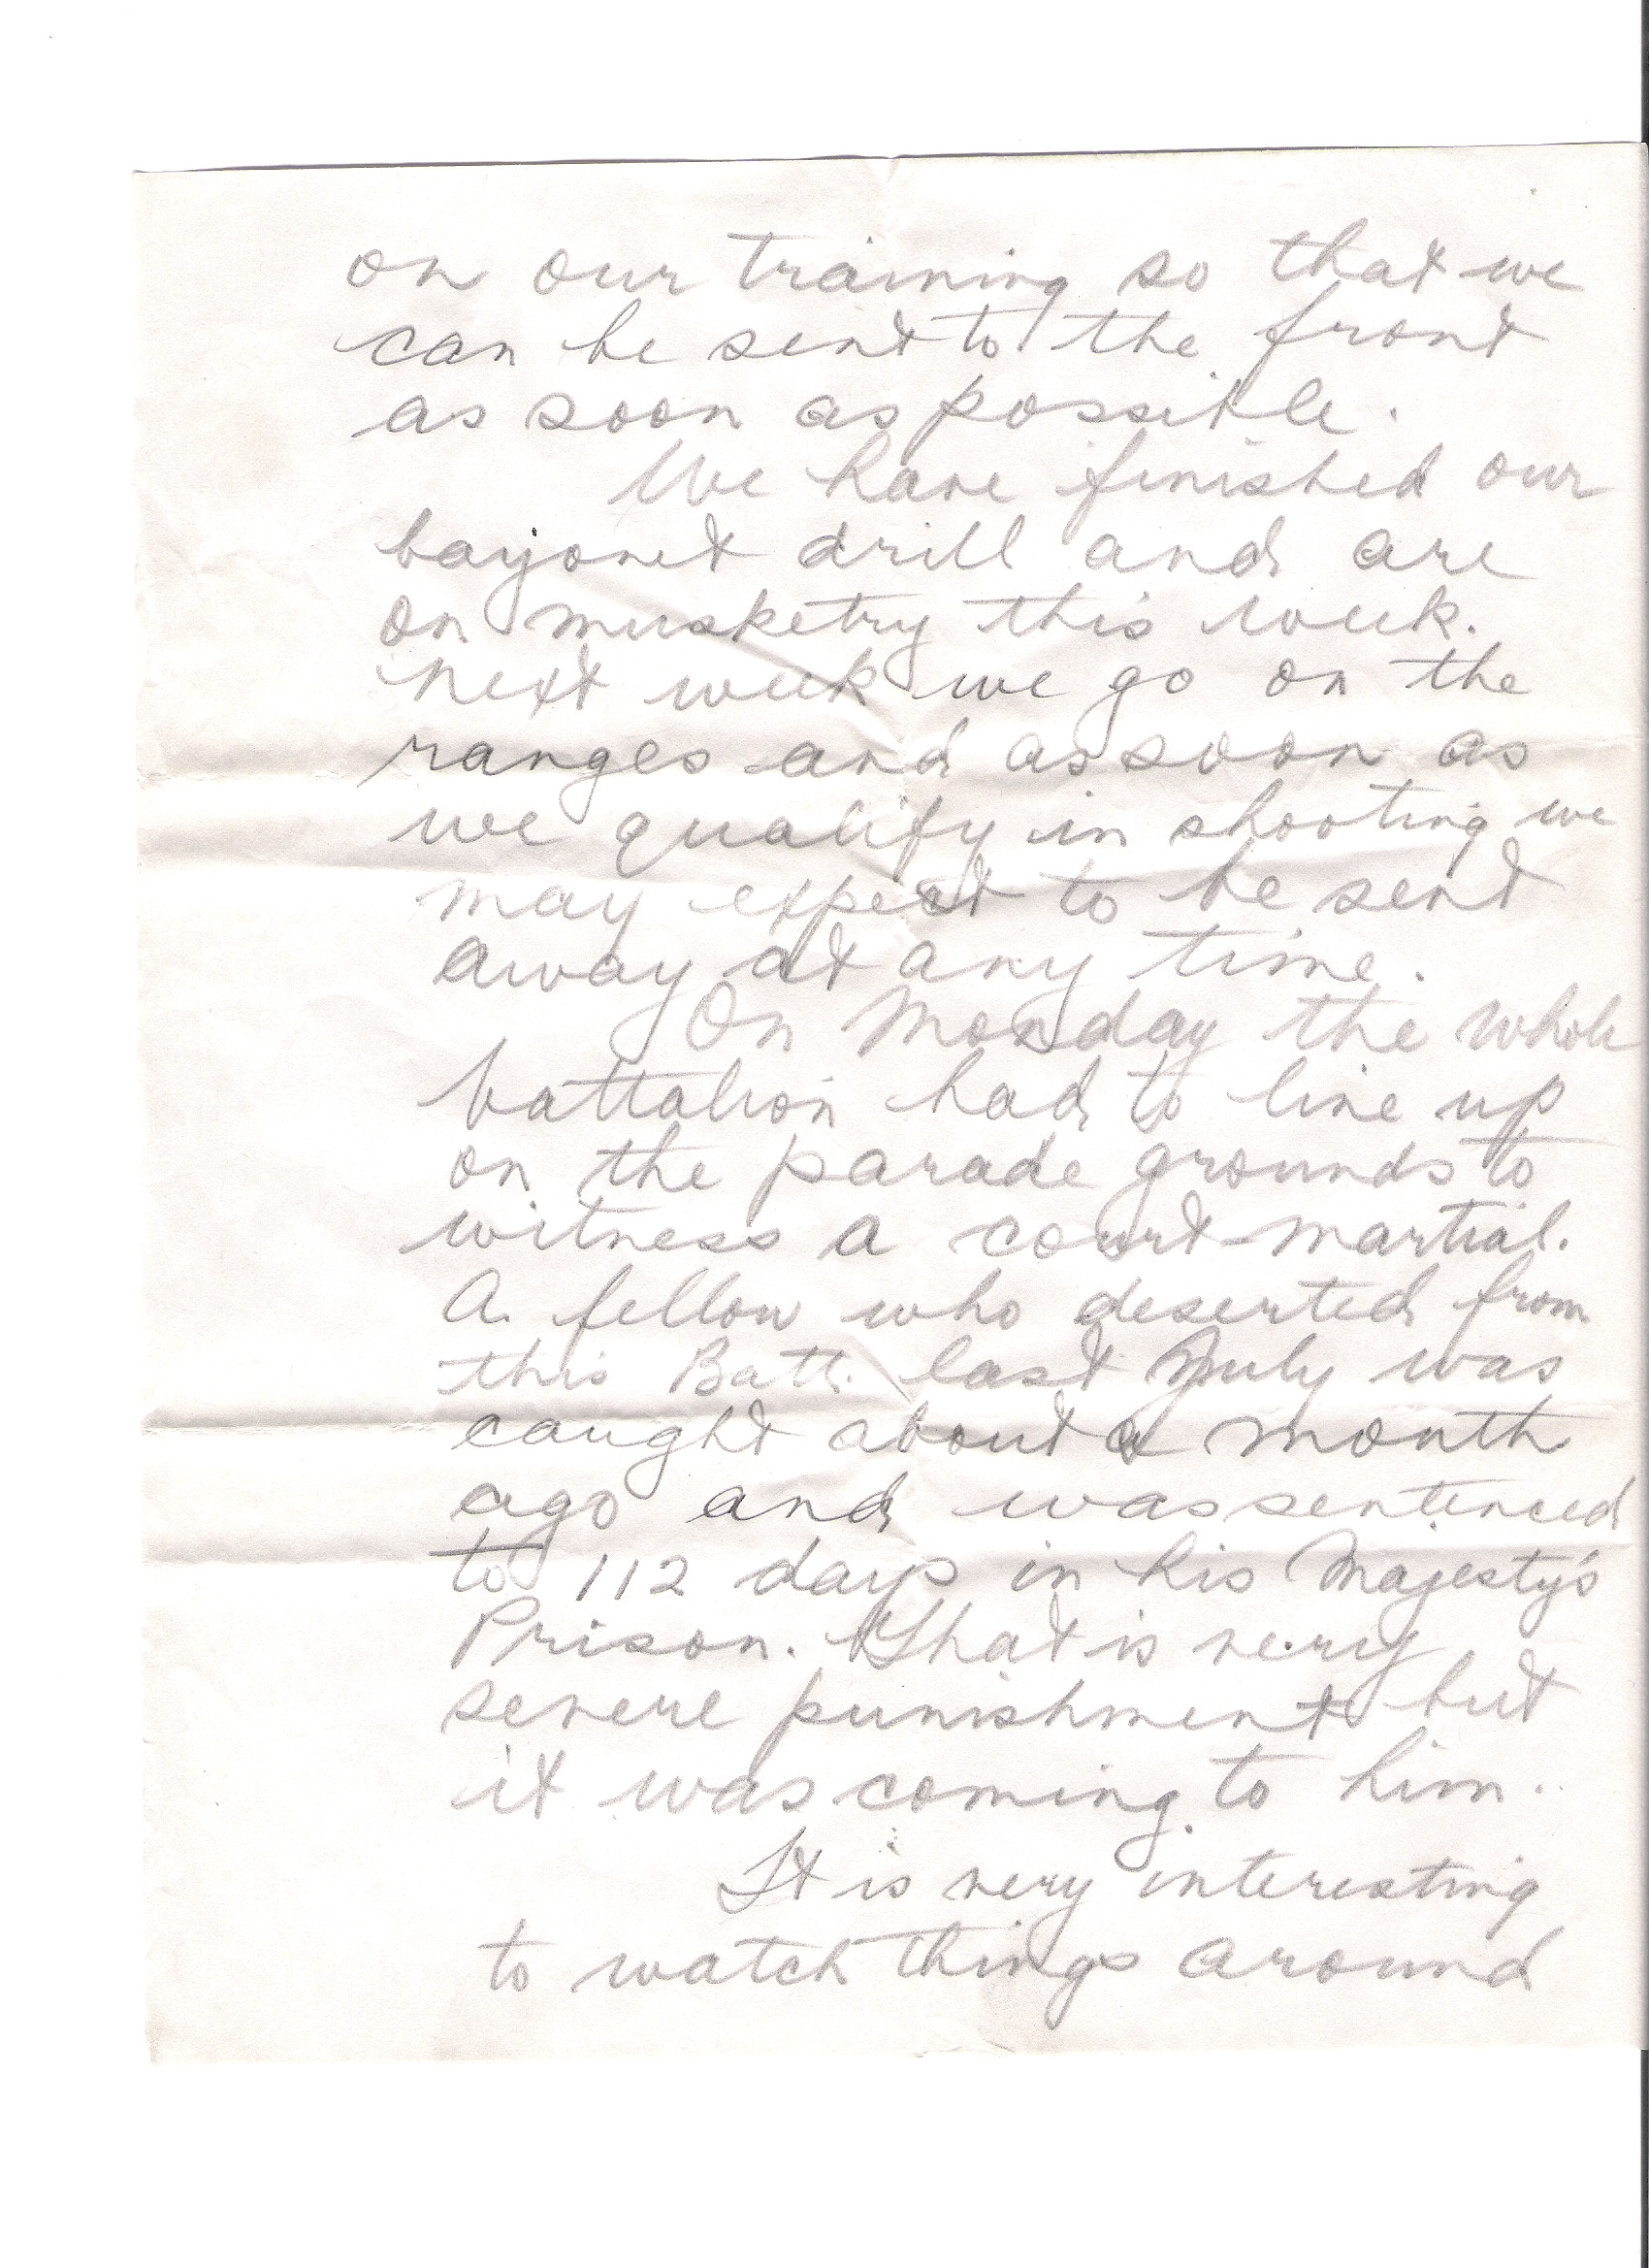 on our training so that we
can be sent to the front
as soon as possible.
We have finished our
bayonet drill and are
on musketry this week.
next week we go on the
ranges and as soon as
we qualify in shooting we
may expect to be sent
away at any time.
On Monday the whole
battalion had to line up
on the parade grounds to
witness a court-martial.
A fellow who deserted from
this Batt. last July was
caught about a month
ago and was sentenced
to 112 days in his Majesty's
Prison. That is very
severe punishment but
it was coming to him.
It is very interesting
to watch things around